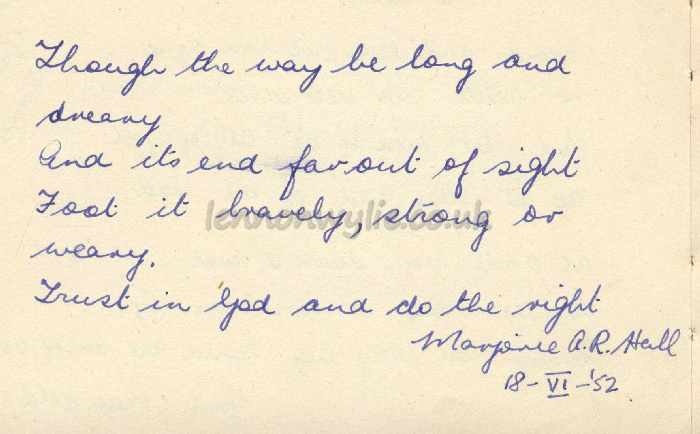 Though the way be long and
dreary
And its end far out of sight
Foot it bravely, strong or
weary.
Trust in God and do the right
Marjorie A.R. Hall
18-VI-'52
lennonwylie.co.uk